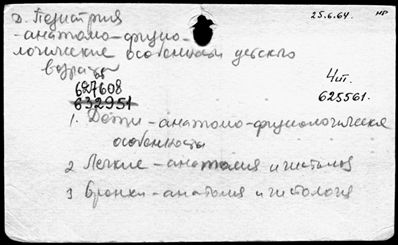 д. Педиатрия
25.6.64. нр
-анатомо-физио-
логические особенности детского
возраста
65
4 шт.
627608
632951
625561.
1. Дети-анатомо-физиологические
особенности
2 Легкие-анатомия и гистология
3 Бронхи-анатомия и гистология